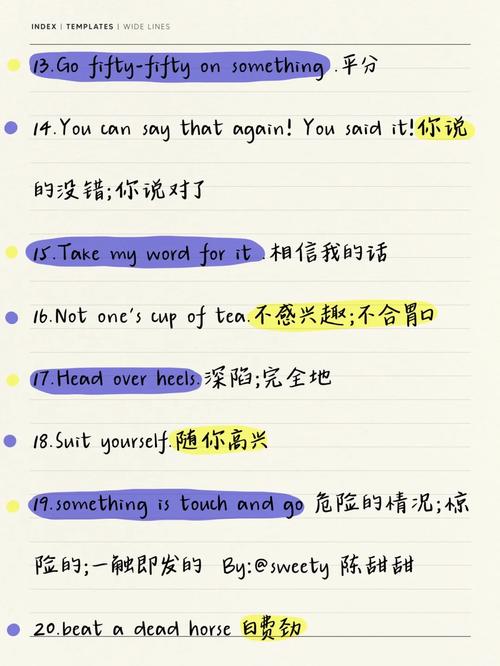 INDEX | TEMPLATES | WIDE LINES
13.Go fifty-fifty on something .平分
14.You can say that again! You said it!你说
的没错;你说对了
15.Take my word for it .相信我的话
16.Not one's cup of tea.不感兴趣;不合胃口
17.Head over heels.深陷;完全地
18.Suit yourself.随你高兴
19.something is touch and go 危险的情况;惊
险的;一触即发的 By:@sweety 陈甜甜
20.beat a dead horse 白费劲